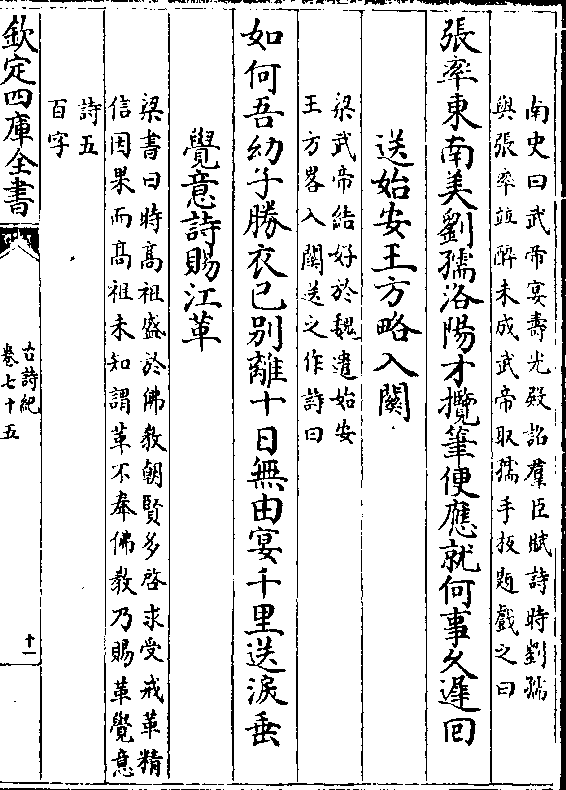 南史曰武帝宴壽光殿詔羣臣賦詩時劉孺
與張率竝醉未成武帝取孺手板題戲之曰
張率東南美劉孺洛陽才攬筆便應就何事久遲回
送始安王方略入關
梁武帝結好於魏遣始安
王方畧入關送之作詩曰
如何吾幼子勝衣已别離十日無由宴千里送淚垂
覺意詩賜江革
梁書曰時高祖盛於佛教朝賢多啓求受戒革精
信因果而高祖未知謂革不奉佛教乃賜革覺意
詩五
百字
欽定四庫全書
古詩紀
卷七十五
十一